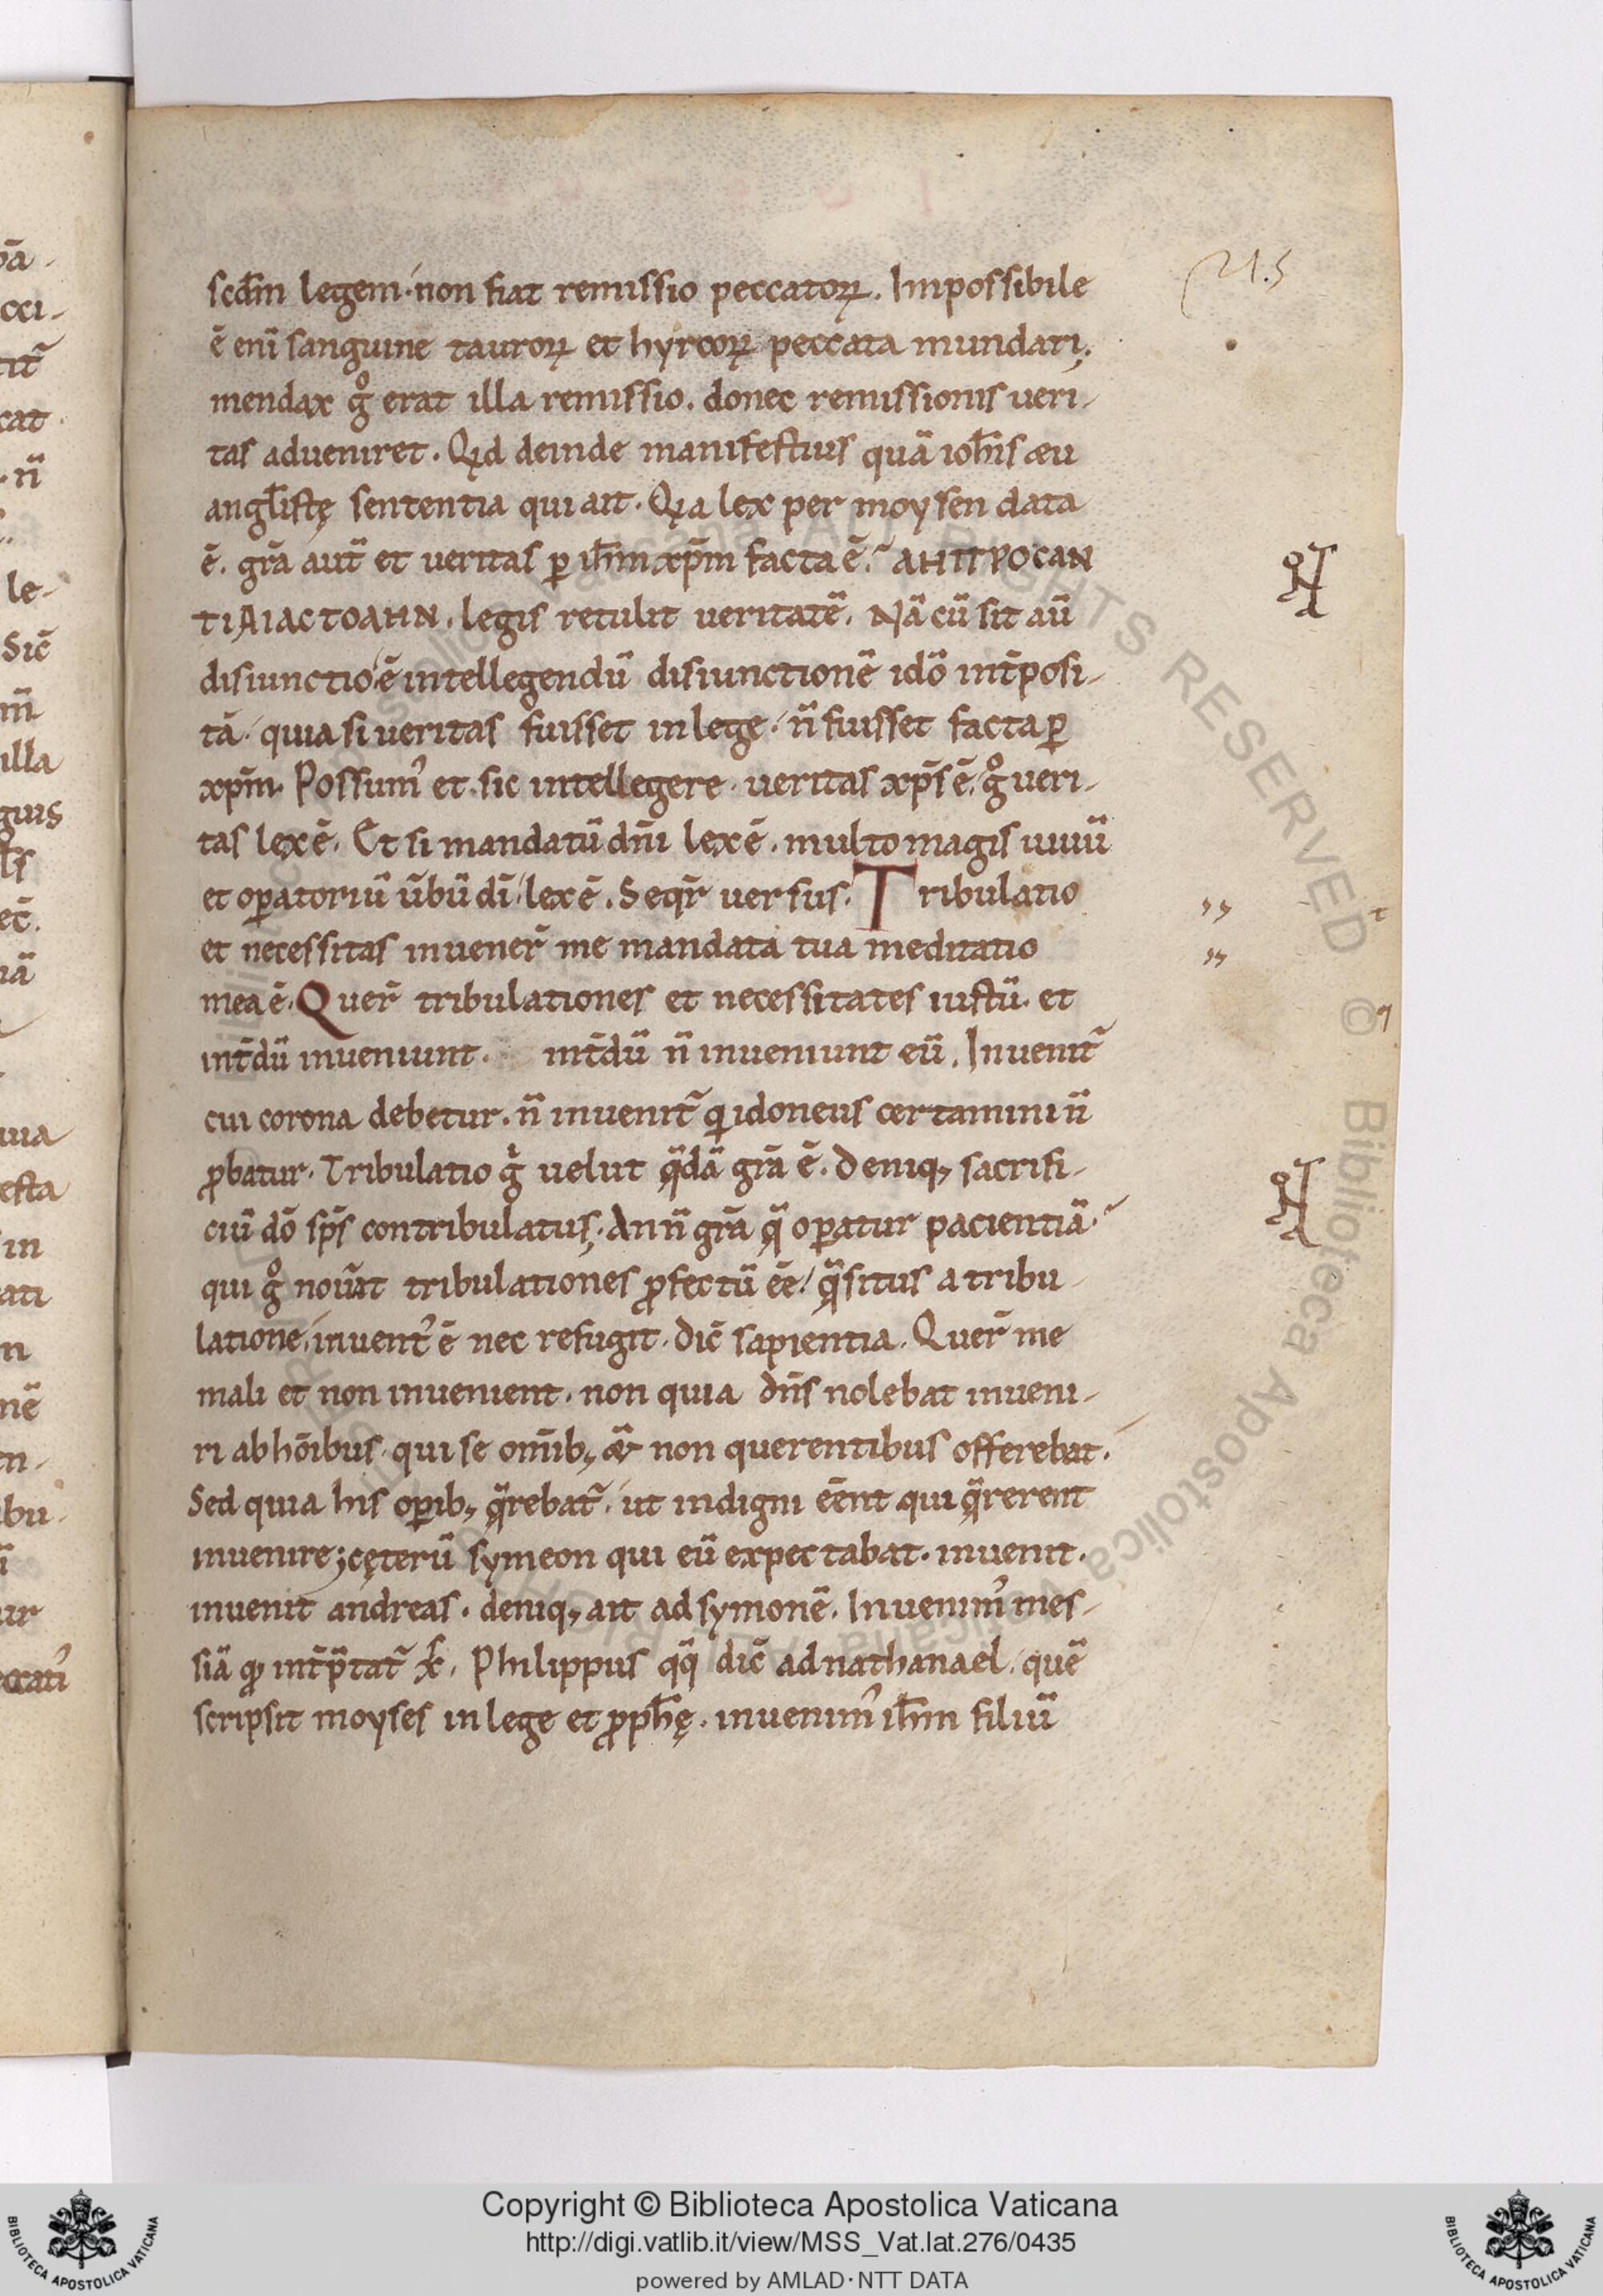 scd̄m legem· non fiat remissio peccatoꝝ. Impossibile
ē eni̅ sanguine tauroꝝ et hyrcoꝝ peccata mundari;
mendax gͦ erat illa remissio. donec remissionis ueri-
tas adueniret. Qid deinde manifestius quā ioh̅is æu
angl̅istę sententia qui ait. Qia lex per moysen data
ē. gr̄a aut̄ et ueritas ꝑ ih̅m xp̅m facta ē. ΑΗΠΡΟCΑΝ
ΤΙΑΙΑCΤΟΑΗΝ. legis retulit ueritatē. Nā cū sit au̅
disiunctio ē intellegendū disiunctionē idō int̄posi-
tā· quia si ueritas fuisset in lege· n̅ fuisset facta ꝑ
xp̅m. Possum᾽ et sic intellegere· ueritas xp̅s ē. gͦ ueri-
tas lex ē. Et si mandatū dn̅i lex ē. multo magis uiuū
et oꝑatoriū ūbū dī· lex ē. Seqr̄ uersus. Tribulatio
et necessitas inuener̄ me mandata tua meditatio
mea ē. Quer̄ tribulationes et necessitates iustū. et
int̄dū inueniunt. int̄dū n̅ inueniunt eū. Inuenit᷑
cui corona debetur. n̅ inuenit᷑ qi idoneus certamini n̅
ꝓbatur. Tribulatio gͥ uelut q̄dā gr̄a ē. Deniq, sacrifi-
ciū dō sp̅s contribulatus; An n̅ gr̄a q̄ oꝑatur pacientiā.
qui gͦ nou̅at tribulationes ꝓfectū ēē· q̄situs a tribu-
latione, inuent᾽ ē nec refugit. dic̄ sapientia. Quer̄ me
mali et non inuenient. non quia dn̅s nolebat inueni-
ri ab hōibus· qui se om̅ib, & non querentibus offerebat.
Sed quia his oꝑib, q̄rebat᷑. ut indigni ēēnt qui q̄rerent
inuenire; cęterū symeon qui eū expectabat. inuenit.
inuenit andreas. deniq, ait ad symonē. Inuenim᾽ mes-
siā qd int̄p̄tat᷑ xc̅. Philippus qq̄ dic̄ ad nathanael. quē
scripsit moyses in lege et ꝓph̅ę. inuenim᾽ ih̅m filiū
215
Copyright © Biblioteca Apostolica Vaticana
http://digi.vatlib.it/view/MSS_Vat.lat.276/0435
powered by AMLAD·NTT DATA
BIBLIOTECA APOSTOLICA VATICANA
BIBLIOTECA APOSTOLICA VATICANA